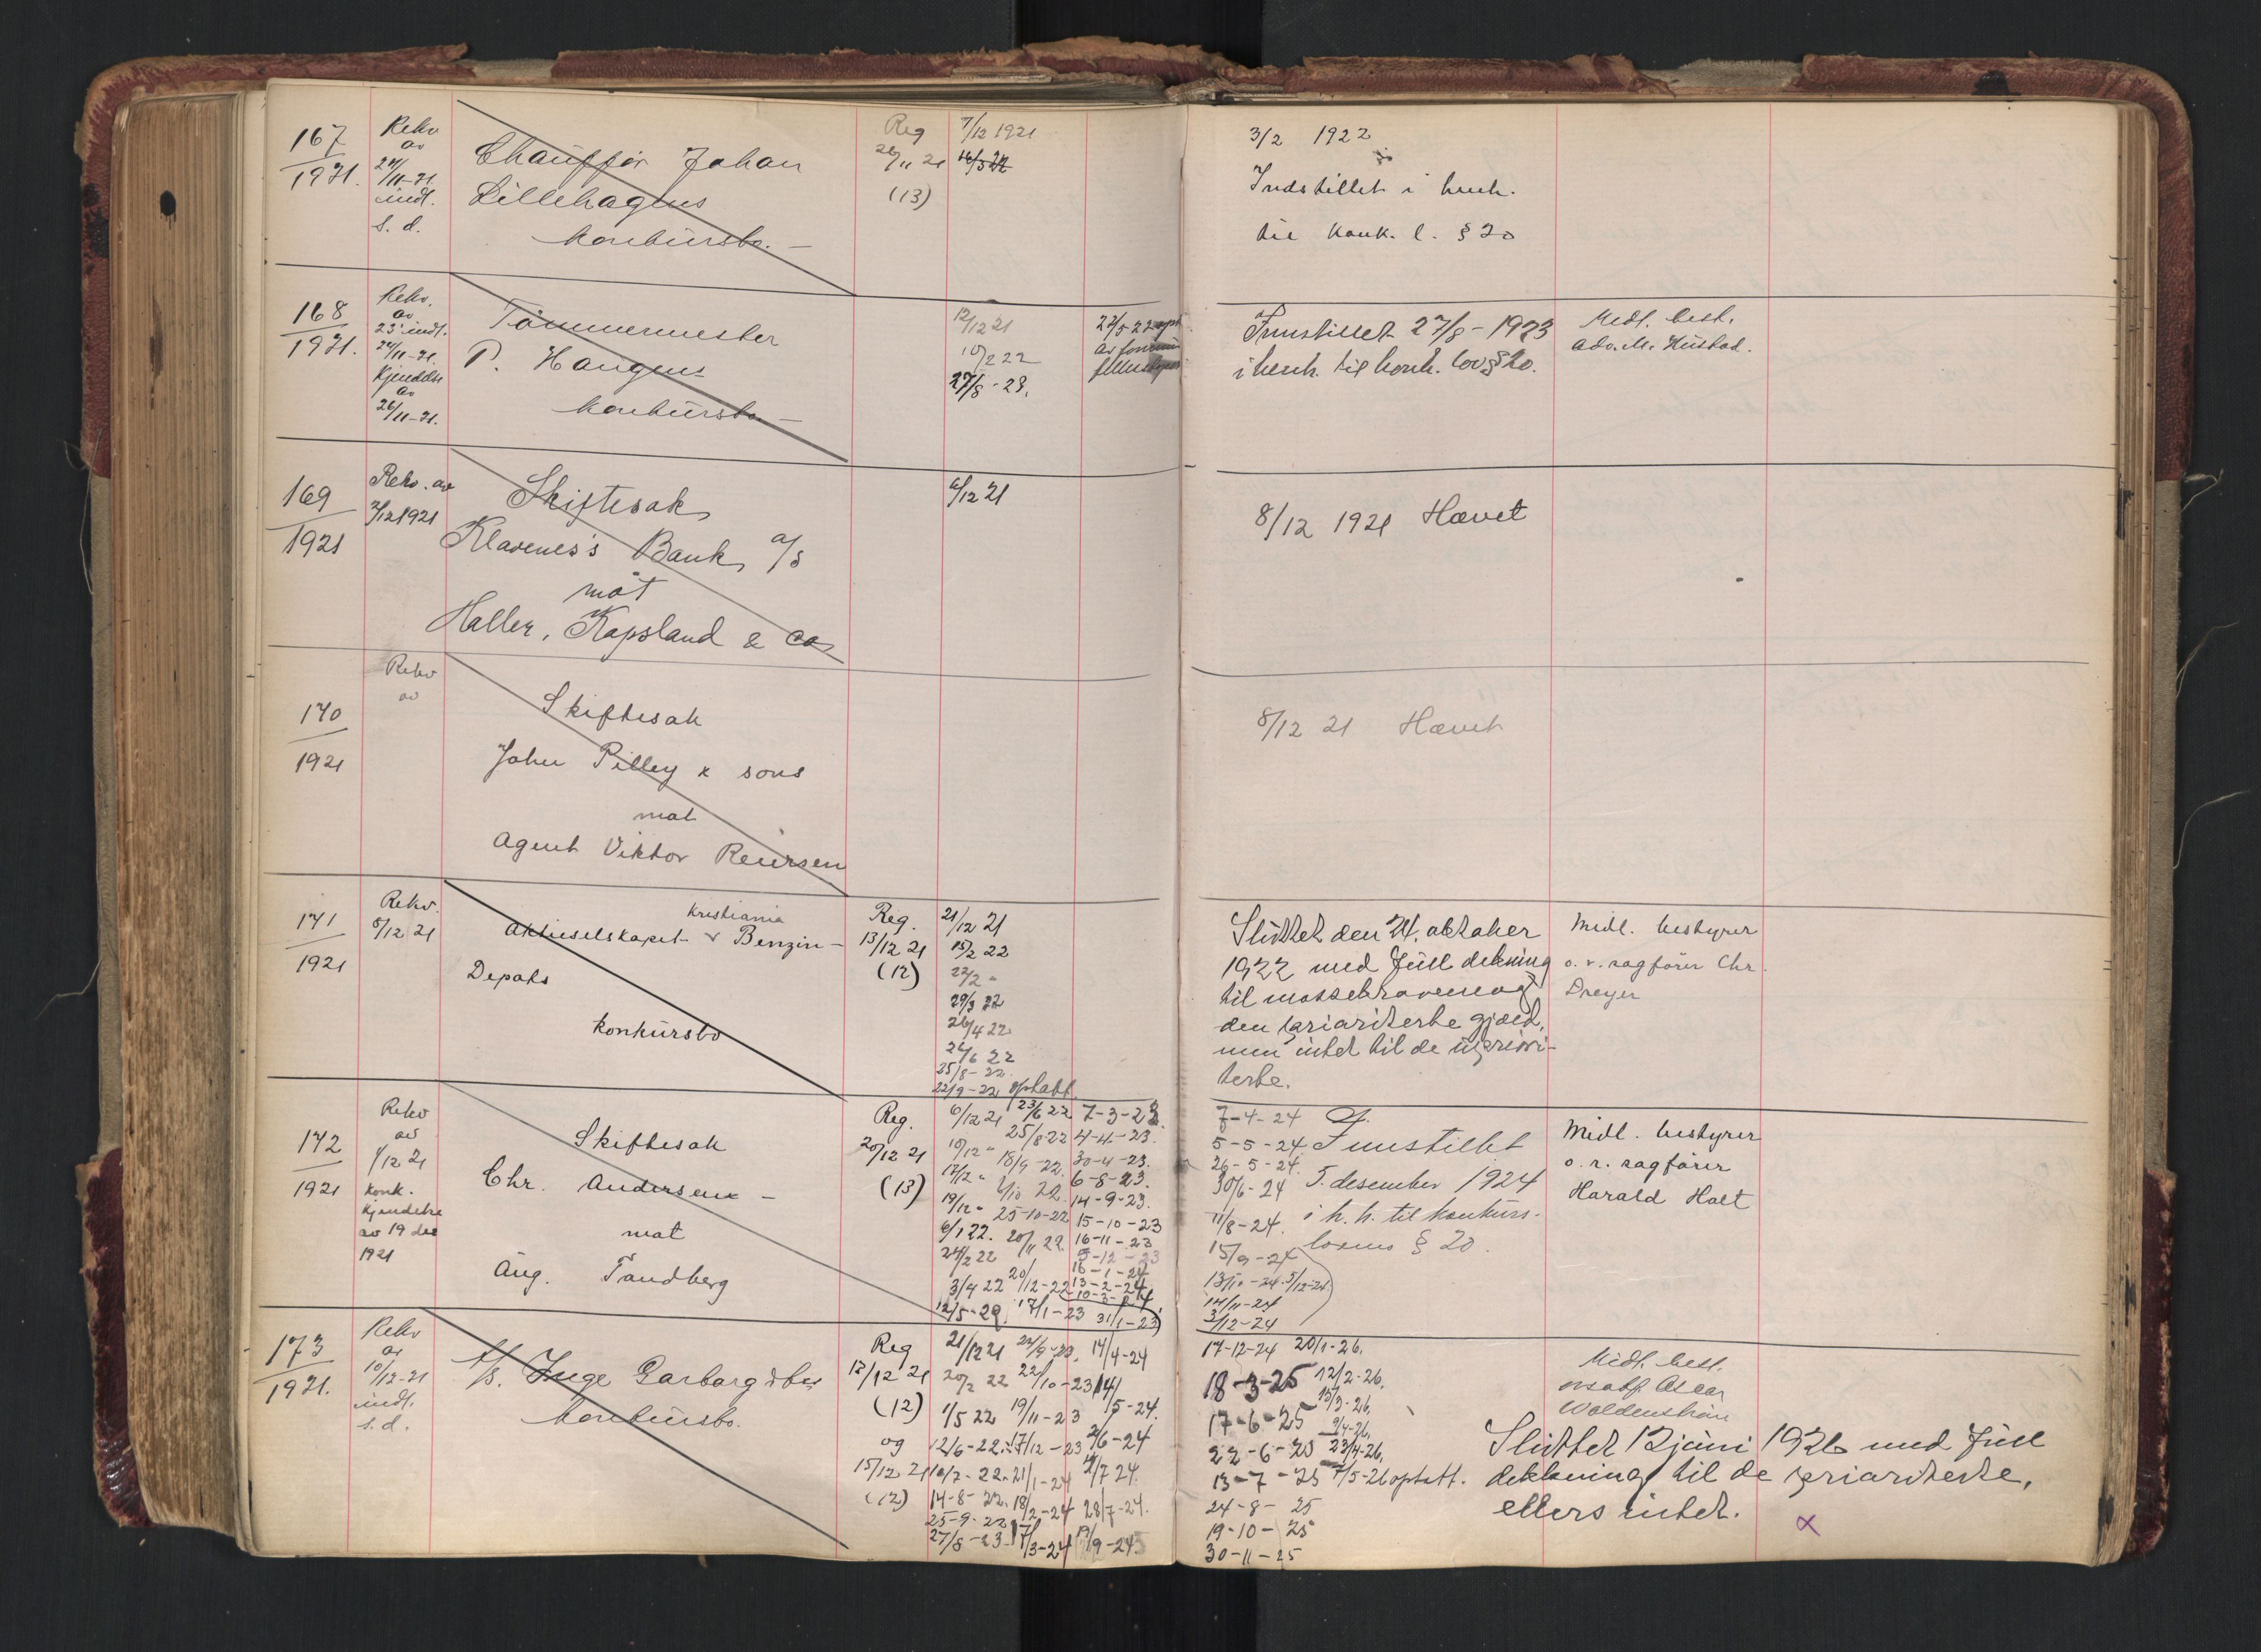 167
1921.
Rekv
av
24/11-21.
indl.
s. d.
Chauffør Johan
Lillehagens
konkursbo. —
Reg
26/11 21
(13)
7/12 1921
3/2 1922
Indstillet i henh.
til konk. l. § 20
168
1921.
Rekv.
av
23 indl.
24/11-21.
Kjendelse
av
26/11-21.
Tømmermester
P. Haugens
konkursbo —
12/12 21
10/2 22
27/8-23.
22/5 22 opt
av
Innstillet 27/8-1923
i henh. til konk. lov § 20.
Midl. best.
adv. M. Hustad.
169
1921
Rekv. av
2/12 1921
Skiftesak
Klavenes's Bank A/S
mot
Haller, Kapsland & Co
6/12 21
8/12 1921 Hævet
170
1921
Rekv
av
Skiftesak
John Pilley & sons
mot
Agent Viktor Reiersen
8/12 21 Hævet
171
1921
Rekv.
8/12 21
Kristiania
Aktieselskapet v Benzin-
Depots
konkursbo
Reg.
13/12 21
(12)
21/12 21
15/2 22
22/2 "
29/3 22
26/4 22
24/6 22
25/8-22.
22/9-22 optatt
Sluttet den 24. oktober
1922 med full dekning
til massekravene og
den prioriterte gjæld,
men intet til de upriori-
terte.
Midl. bestyrer
o. r. sagfører Chr.
Dreyer
172
1921
Rekv
av
1/12 21
konk.
kjendelse
av 19 des
1921
Skiftesak
Chr. Andersen —
mot
Aug. Tandberg
Reg.
20/12 21
(13)
6/12 21 23/6 22 7-3-23.
10/12 " 25/8 22 4-4-23.
17/12 " 18/9-22. 30-4-23.
19/12 " 2/10 22. 6-8-23.
25-10-22 14-9-23.
6/1 22. 20/11 22. 15-10-23
24/2 22 16-11-23
5-12-23
3/4 22 20/12-22 16-1-24
13-2-24
10-3-24.
12/5-22, 17/1-23 31/1-23)
7-4-24
5-5-24.
26-5-24.
30/6-24
11/8-24.
15/9-24
13/10-24. 5/12-24.
14/11-24
3/12-24
Innstillet
5. desember 1924
i h. h. til konkurs-
lovens § 20.
Midl. bestyrer
o. r. sagfører
Harald Holt
173
1921.
Rekv
av
10/12-21
indl.
s. d.
A/S. Inge Garborg dbs
konkursbo.
Reg
12/12 21
(12)
og
15/12 21
(12)
21/12 21 24/9-23. 14/4-24
20/2 22 22/10-23 14/5-24.
1/5 22 19/11-23
12/6-22. 17/12-23 2/6-24
10/7-22. 21/1-24 14/7 24.
14-8-22. 18/2-24 28/7-24.
25-9-22
27/8-23 17/3-24 19/9-24
17-12-24 20/1-26.
18-3-25 12/2-26.
17-6-25 15/3-26.
9/4-26.
22-6-25 23/4-26.
13-7-25 7/5-26 optatt.
24-8-25
19-10-25
30-11-25
Midl. best.
Oscar
Woldenstrøm
Sluttet 12 juni 1926 med full
dekkning til de prioriterte,
ellers intet.
x